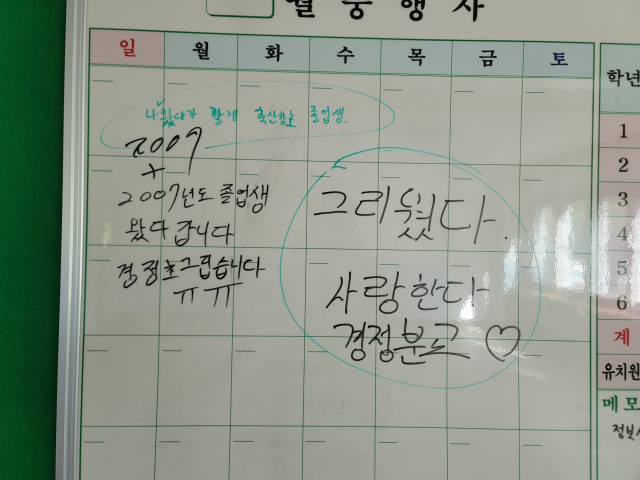 월 중 행 사
일 월 화 수 목 금 토
나 왔다가 할게 축산항초 졸업생.
2009
+
2007년도 졸업생
왔다 갑니다
경정초 그립습니다
ㅠㅠ
그리웠다.
사랑한다
경정분교 ♡
학년
1
2
3
4
5
6
계
유치원
메모